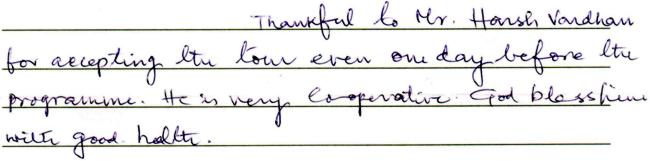 Thankful to Mr. Harsh Vardhan
for accepting the tour even one day before the
programme. He is very Cooperative. God bless him
with good halth.